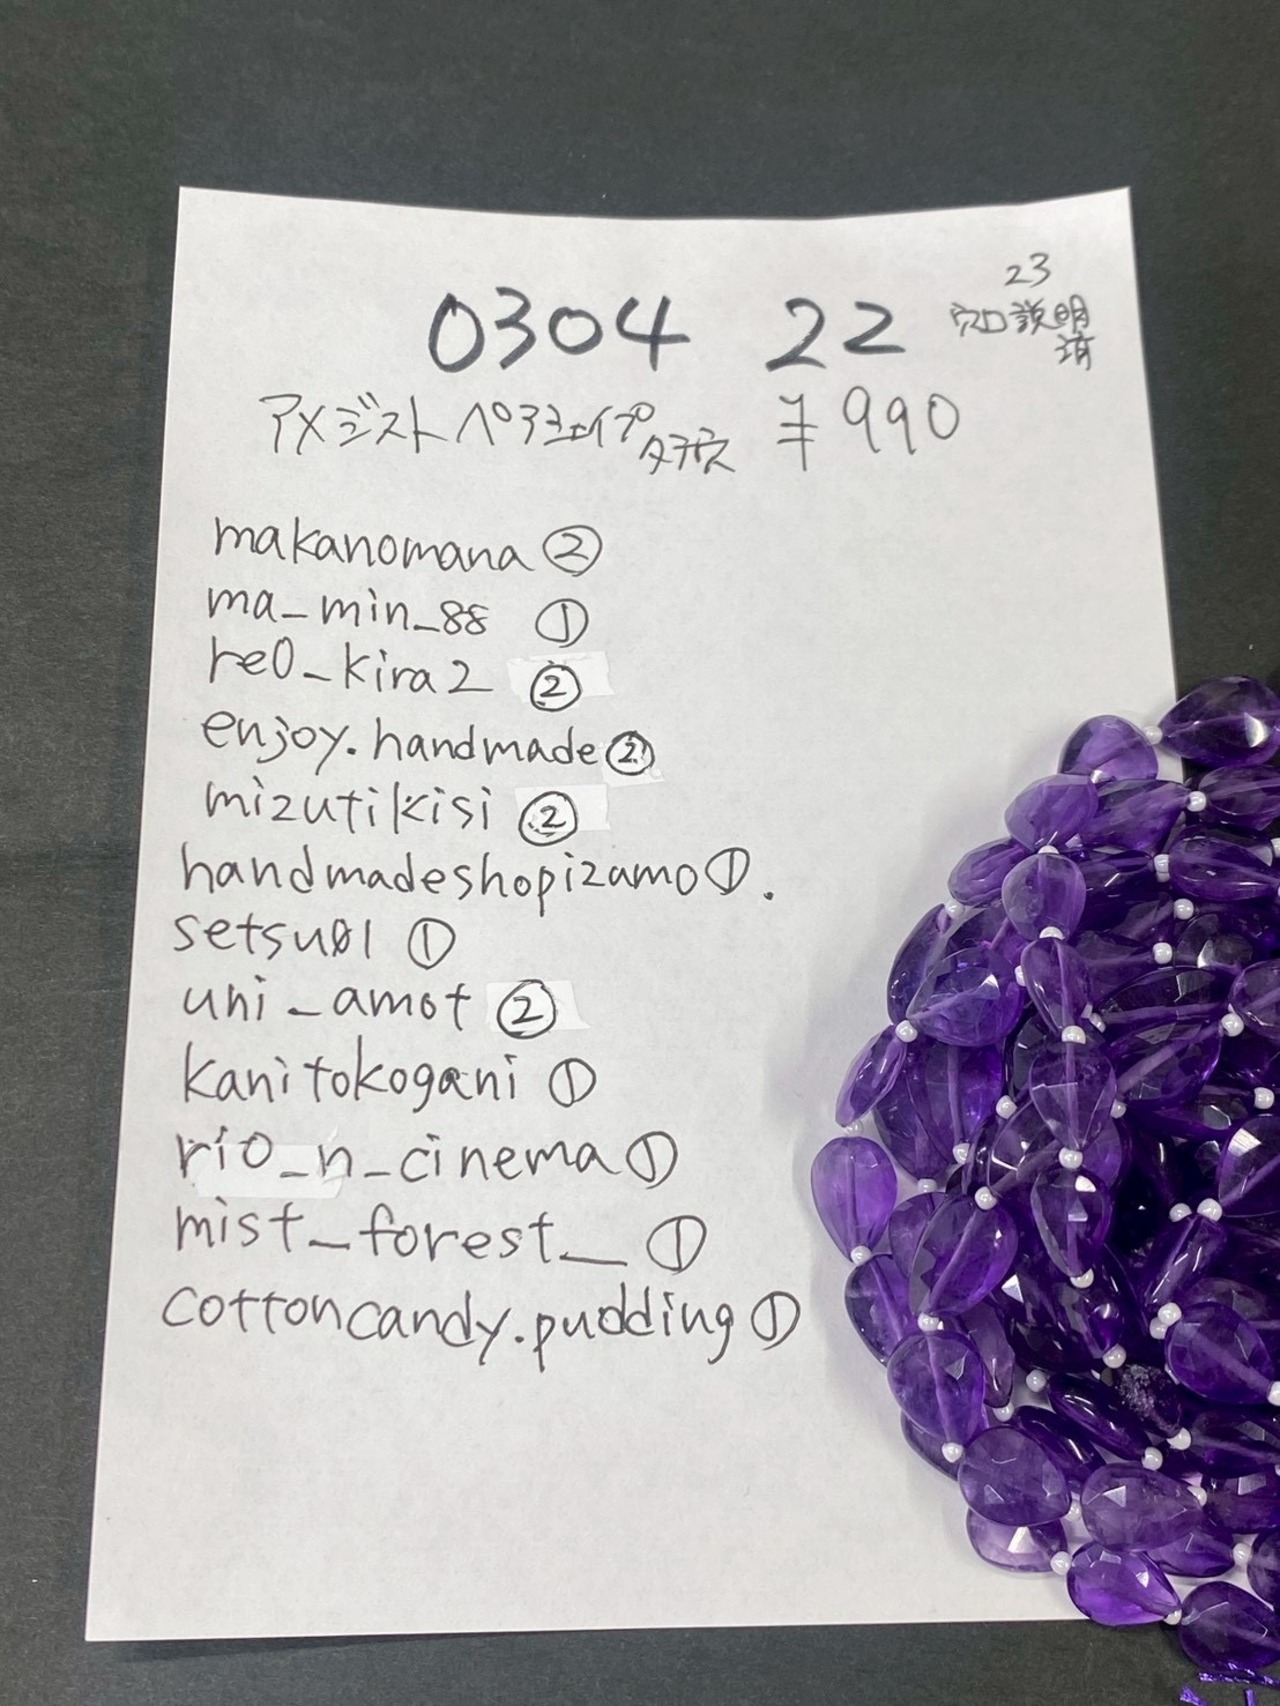 0304 22
23
穴口説明
済
アメジストペアシェイプ タテ穴 ¥990
makanomana ②
ma_min_88 ①
re0_kira2 ②
enjoy.handmade ②
mizutikisi ②
handmadeshopizamo ①.
setsu01 ①
uni_amot ②
kanitokogani ①
rio_n_cinema ①
mist_forest__ ①
cottoncandy.pudding ①